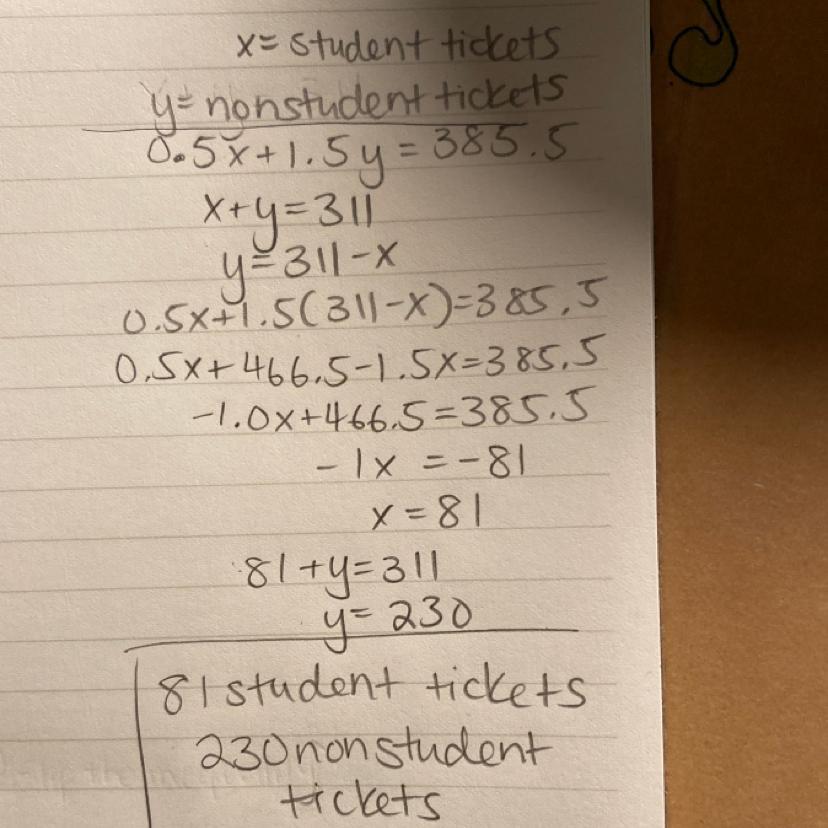 x= student tickets
y= nonstudent tickets
0.5x+1.5y=385.5
x+y=311
y=311-x
0.5x+1.5(311-x)=385.5
0.5x+466.5-1.5x=385.5
-1.0x+466.5=385.5
-1x=-81
x=81
81+y=311
y=230
81 student tickets
230 nonstudent
tickets